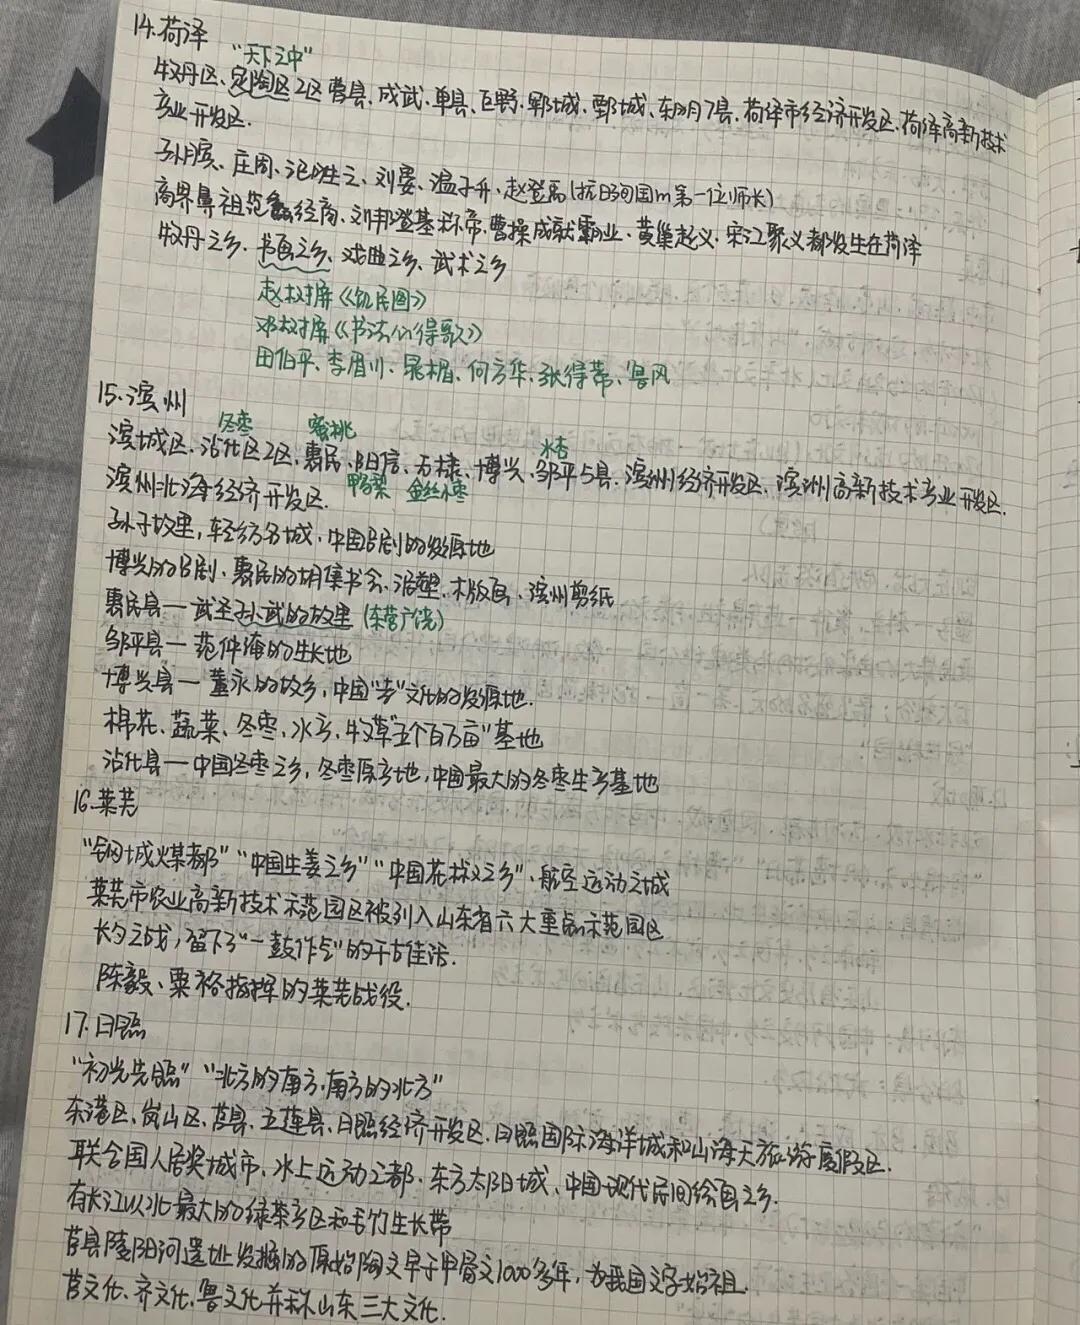 14.荷泽
"天下之中"
牡丹区、定陶区2区 曹县、成武、单县、巨野、郓城、鄄城、东明7县、荷泽市经济开发区、荷泽高新技术
产业开发区.
孙膑、庄周、氾胜之、刘晏、温子升、赵登禹(抗日殉国m第一位师长)
商界鼻祖范蠡经商、刘邦登基称帝、曹操成就霸业、黄巢起义、宋江聚义都发生在荷泽
牡丹之乡、书画之乡、戏曲之乡、武术之乡
赵树屏《饥民图》
邓树屏《书法心得歌》
田伯平、李眉川、晁楣、何方华、张得蒂、鲁风
15.滨州
冬枣 蜜桃 水杏
滨城区、沾化区2区、惠民、阳信、无棣、博兴、邹平5县、滨州经济开发区、滨州高新技术产业开发区.
滨州北海经济开发区. 鸭梨 金丝小枣
孙子故里，轻纺名城，中国吕剧的发源地
博兴的吕剧、惠民的胡集书会、泥塑、木版画、滨州剪纸
惠民县—武圣孙武的故里 (东营广饶)
邹平县—范仲淹的生长地
博兴县—董永的故乡，中国"孝"文化的发源地.
棉花、蔬菜、冬枣、水产、牧草"五个百万亩"基地
沾化县—中国冬枣之乡，冬枣原产地，中国最大的冬枣生产基地
16.莱芜
"钢城煤都" "中国生姜之乡" "中国花椒之乡"、航空运动之城
莱芜市农业高新技术示范园区被列入山东省六大重点示范园区
长勺之战，留下了"一鼓作气"的千古佳话.
陈毅、粟裕指挥的莱芜战役.
17.日照
"初光先照" "北方的南方，南方的北方"
东港区、岚山区、莒县、五莲县、日照经济开发区、日照国际海洋城和山海天旅游度假区.
联合国人居奖城市、水上运动之都、东方太阳城、中国现代民间绘画之乡.
有长江以北最大的绿茶产区和毛竹生长带
莒县陵阳河遗址发掘的原始陶文早于甲骨文1000多年，为我国文字始祖.
莒文化、齐文化、鲁文化并称山东三大文化.